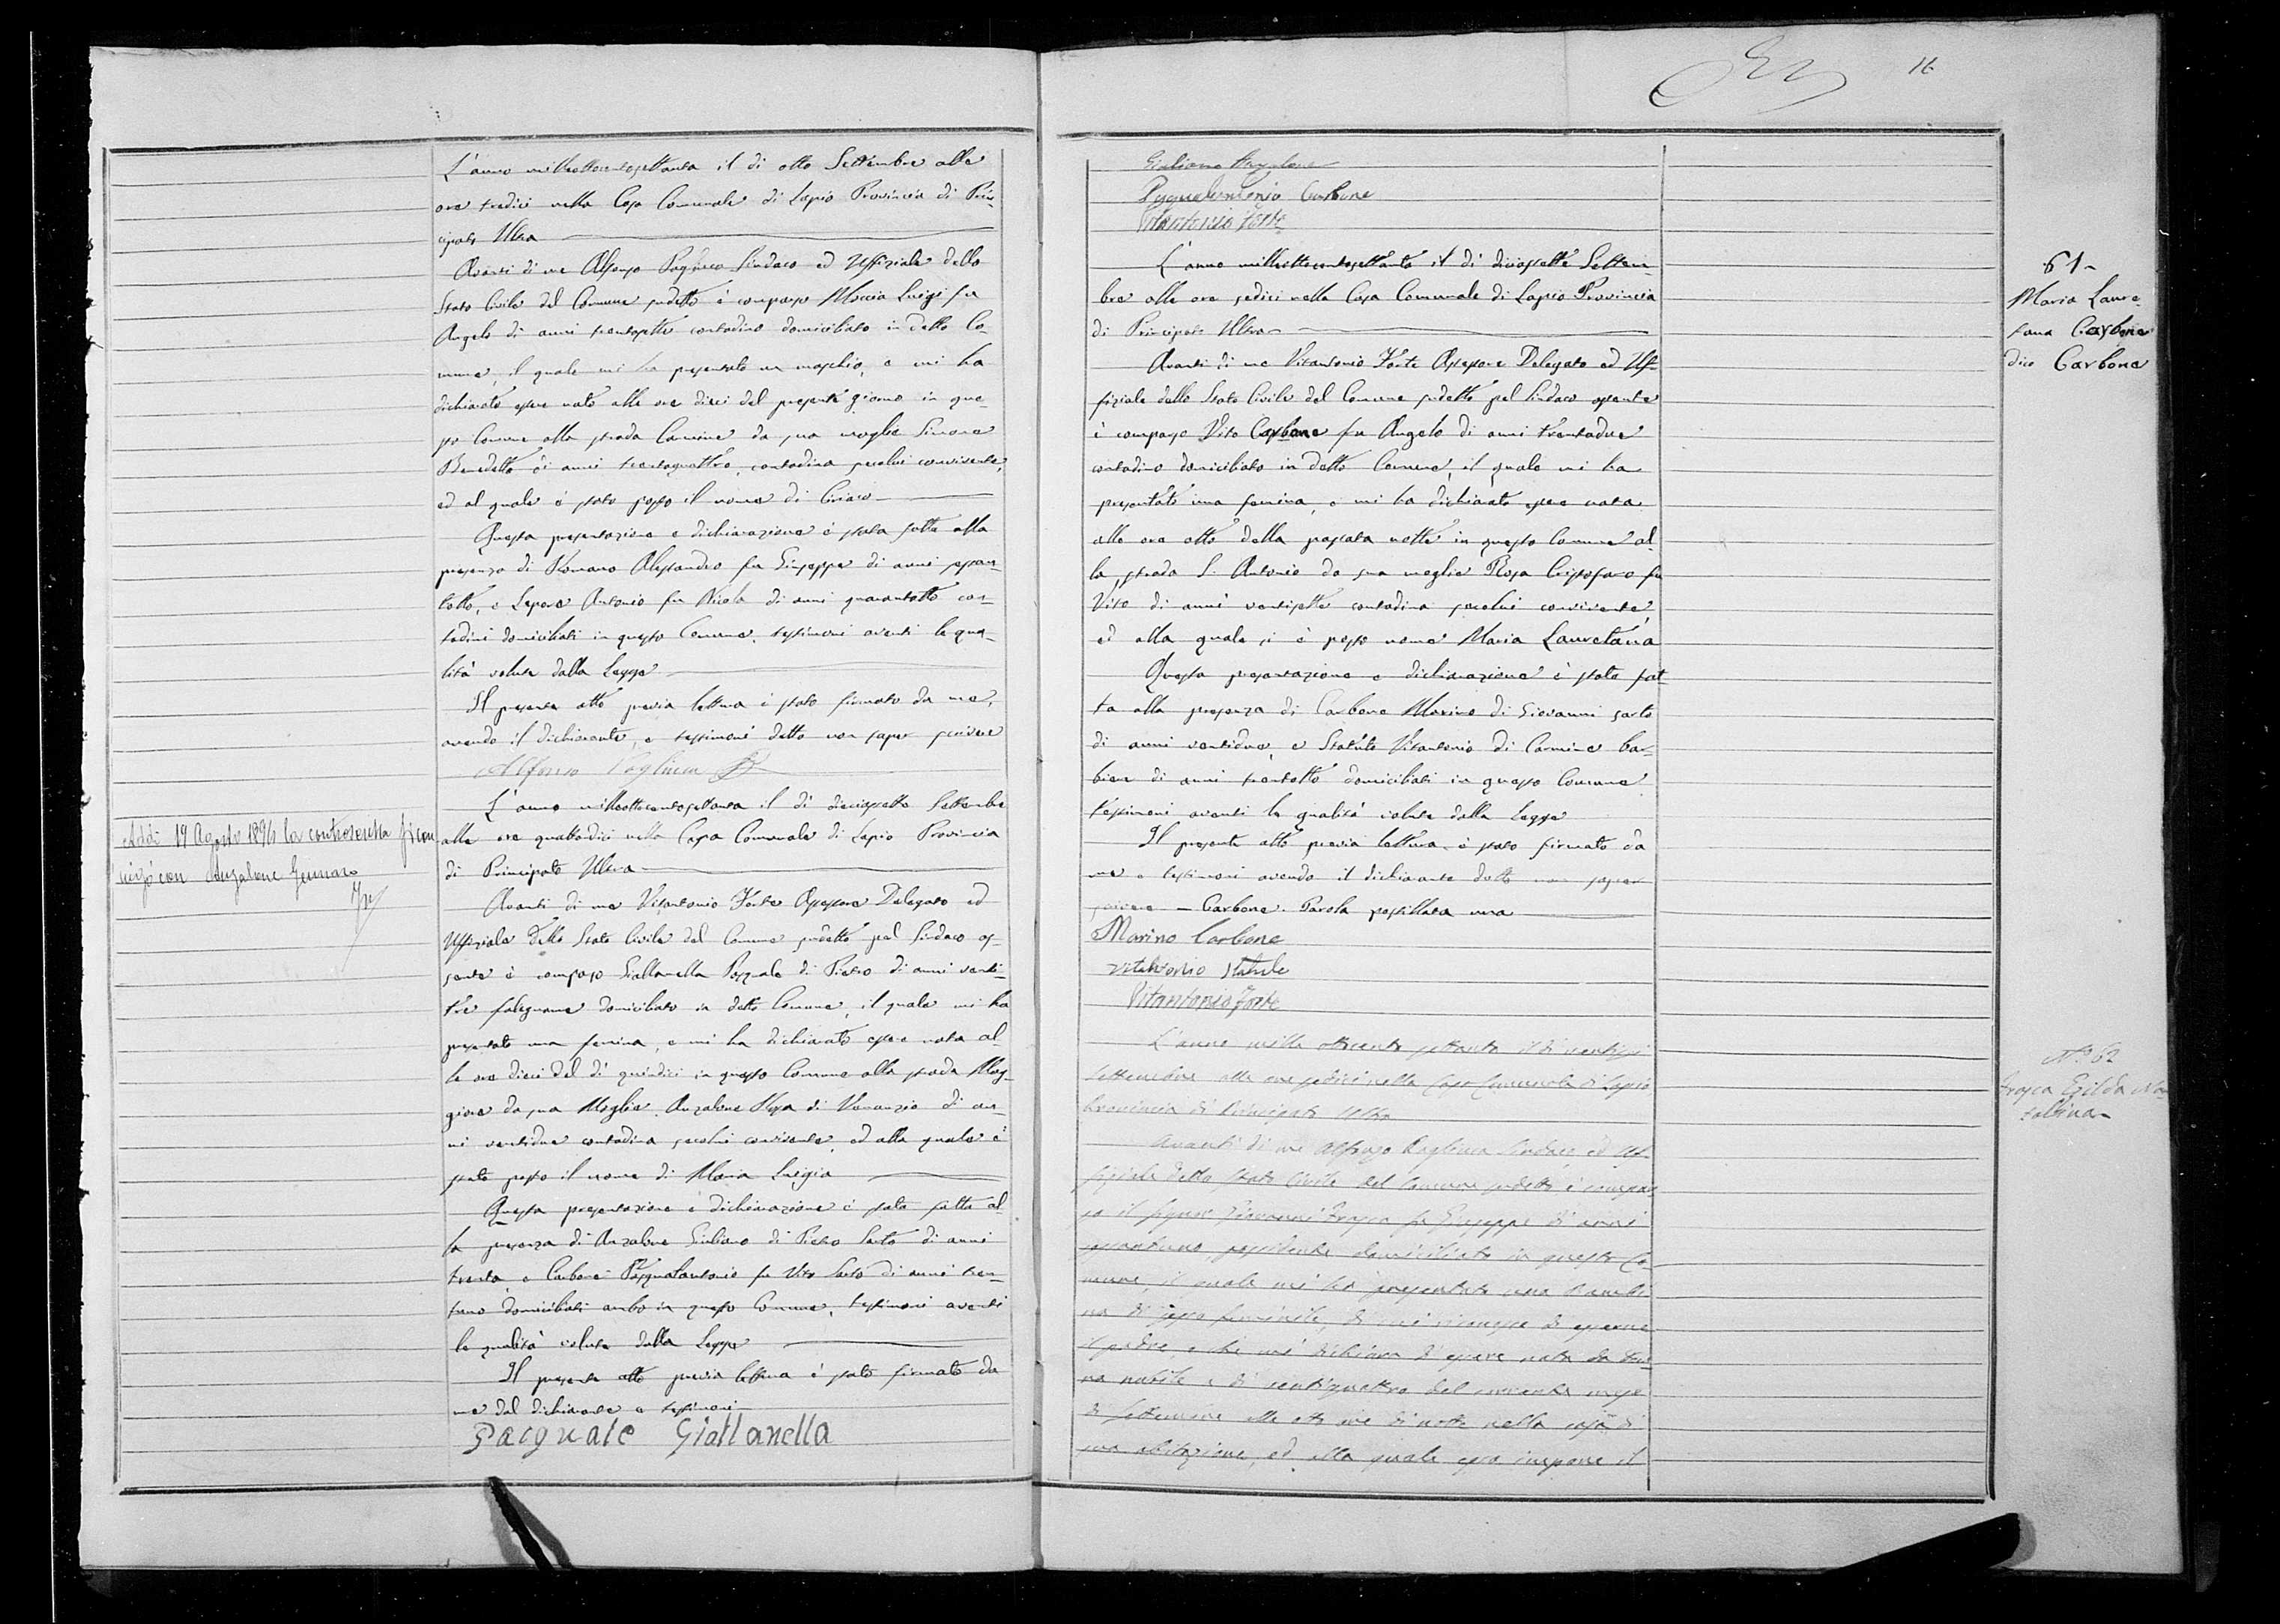 L'anno milleottocentosettanta il di otto Settembre alle
ore tredici nella Casa Comunale di Lapio Provincia di Prin-
cipato Ultra
Avanti di me Alfonso Pagliuca Sindaco ed Uffiziale dello
Stato Civile del Comune sudetto è comparso Moccia Luigi fu
Angelo di anni trentasette contadino domiciliato in detto Co-
mune, il quale mi ha presentato un maschio, e mi ha
dichiarato essere nato alle ore dieci del presente giorno in que-
sto Comune alla strada Carmine da sua moglie
Benedetta di anni trentaquattro, contadina secolui convivente,
ed al quale è stato posto il nome di Ciriaco
Questa presentazione e dichiarazione è stata fatta alla
presenza di Romano Alessandro fu Giuseppe di anni
e Lepore Antonio fu Nicola di anni quarantotto con-
tadini domiciliati in questo Comune, testimoni aventi le qua-
lità volute dalla Legge
Il presente atto previa lettura è stato firmato da me,
avendo il dichiarante, e testimoni detto non saper scrivere
Alfonso Pagliuca
L'anno milleottocentosettanta il di diciassette Settembre
alle ore quattordici nella Casa Comunale di Lapio Provincia
di Principato Ultra
Avanti di me Vitantonio Forte Assessore Delegato ed
Uffiziale dello Stato Civile del Comune sudetto pel Sindaco as-
sente è comparso Giallanella Pasquale di Pietro di anni venti-
tre falegname domiciliato in detto Comune, il quale mi ha
presentato una femina, e mi ha dichiarato essere nata al-
le ore dieci del di quindici in questo Comune alla strada Mag-
giore da sua Moglie Anzalone Rosa di Venanzio di an-
ni ventidue contadina secolui convivente, ed alla quale è
stato posto il nome di Maria Luigia
Questa presentazione e dichiarazione è stata fatta al-
la presenza di Anzalone Giuliano di Pietro Sarto di anni
trenta e Carbone Pasqualantonio fu Vito Sarto di anni tren-
tuno domiciliati ambo in questo Comune, testimoni aventi
le qualità volute dalla Legge
Il presente atto previa lettura è stato firmato da
me dal dichiarante e testimoni
Pasquale Giallanella
Addì 19 Agosto 1896 la controscritta si con
iugò con Anzalone Gennaro
16
Giuliano Anzalone
Pasqualantonio Carbone
Vitantonio Forte
L'anno milleottocentosettanta il di diciassette Settem-
bre alle ore sedici nella Casa Comunale di Lapio Provincia
di Principato Ultra
Avanti di me Vitantonio Forte Assessore Delegato ed Uf-
fiziale dello Stato Civile del Comune sudetto pel Sindaco assente
è comparso Vito Carbone fu Angelo di anni trentadue
contadino domiciliato in detto Comune, il quale mi ha
presentato una femina, e mi ha dichiarato essere nata
alle ore otto della passata notte in questo Comune al-
la strada S. Antonio da sua moglie Rosa Cristofaro fu
Vito di anni ventisette contadina secolui convivente
ed alla quale si è posto nome Maria Lauretana
Questa presentazione e dichiarazione è stata fat-
ta alla presenza di Carbone Marino di Giovanni sarto
di anni ventidue e Statuto Vitantonio di Carmine bar-
biere di anni trentotto domiciliati in questo Comune
testimoni aventi le qualità volute dalla Legge
Il presente atto previa lettura è stato firmato da
me e testimoni avendo il dichiarante detto non saper
scrivere — Carbone. Parola postillata una
Marino Carbone
Vitantonio
Vitantonio Forte
L'anno mille ottocento settanta il di
Settembre alle ore sedici nella Casa Comunale di Lapio
Provincia di Principato Ultra
Avanti di me Alfonso Pagliuca Sindaco ed Uf-
fiziale dello Stato Civile del Comune sudetto è compar-
so il Signor Giovanni Frasca fu Giuseppe di anni
possidente domiciliato in questo Co-
mune, il quale mi ha presentato una bambi-
na di sesso feminile, di cui riconosce di esserne
il padre, e che mi dichiara di essere nata da don-
na nubile il di ventiquattro del corrente mese
di Settembre alle otto ore di notte nella casa di
sua abitazione, ed alla quale egli impone il
61-
Maria Laure-
tana Carbone
dico Carbone
N° 62
Frasca Gilda Na-
talina